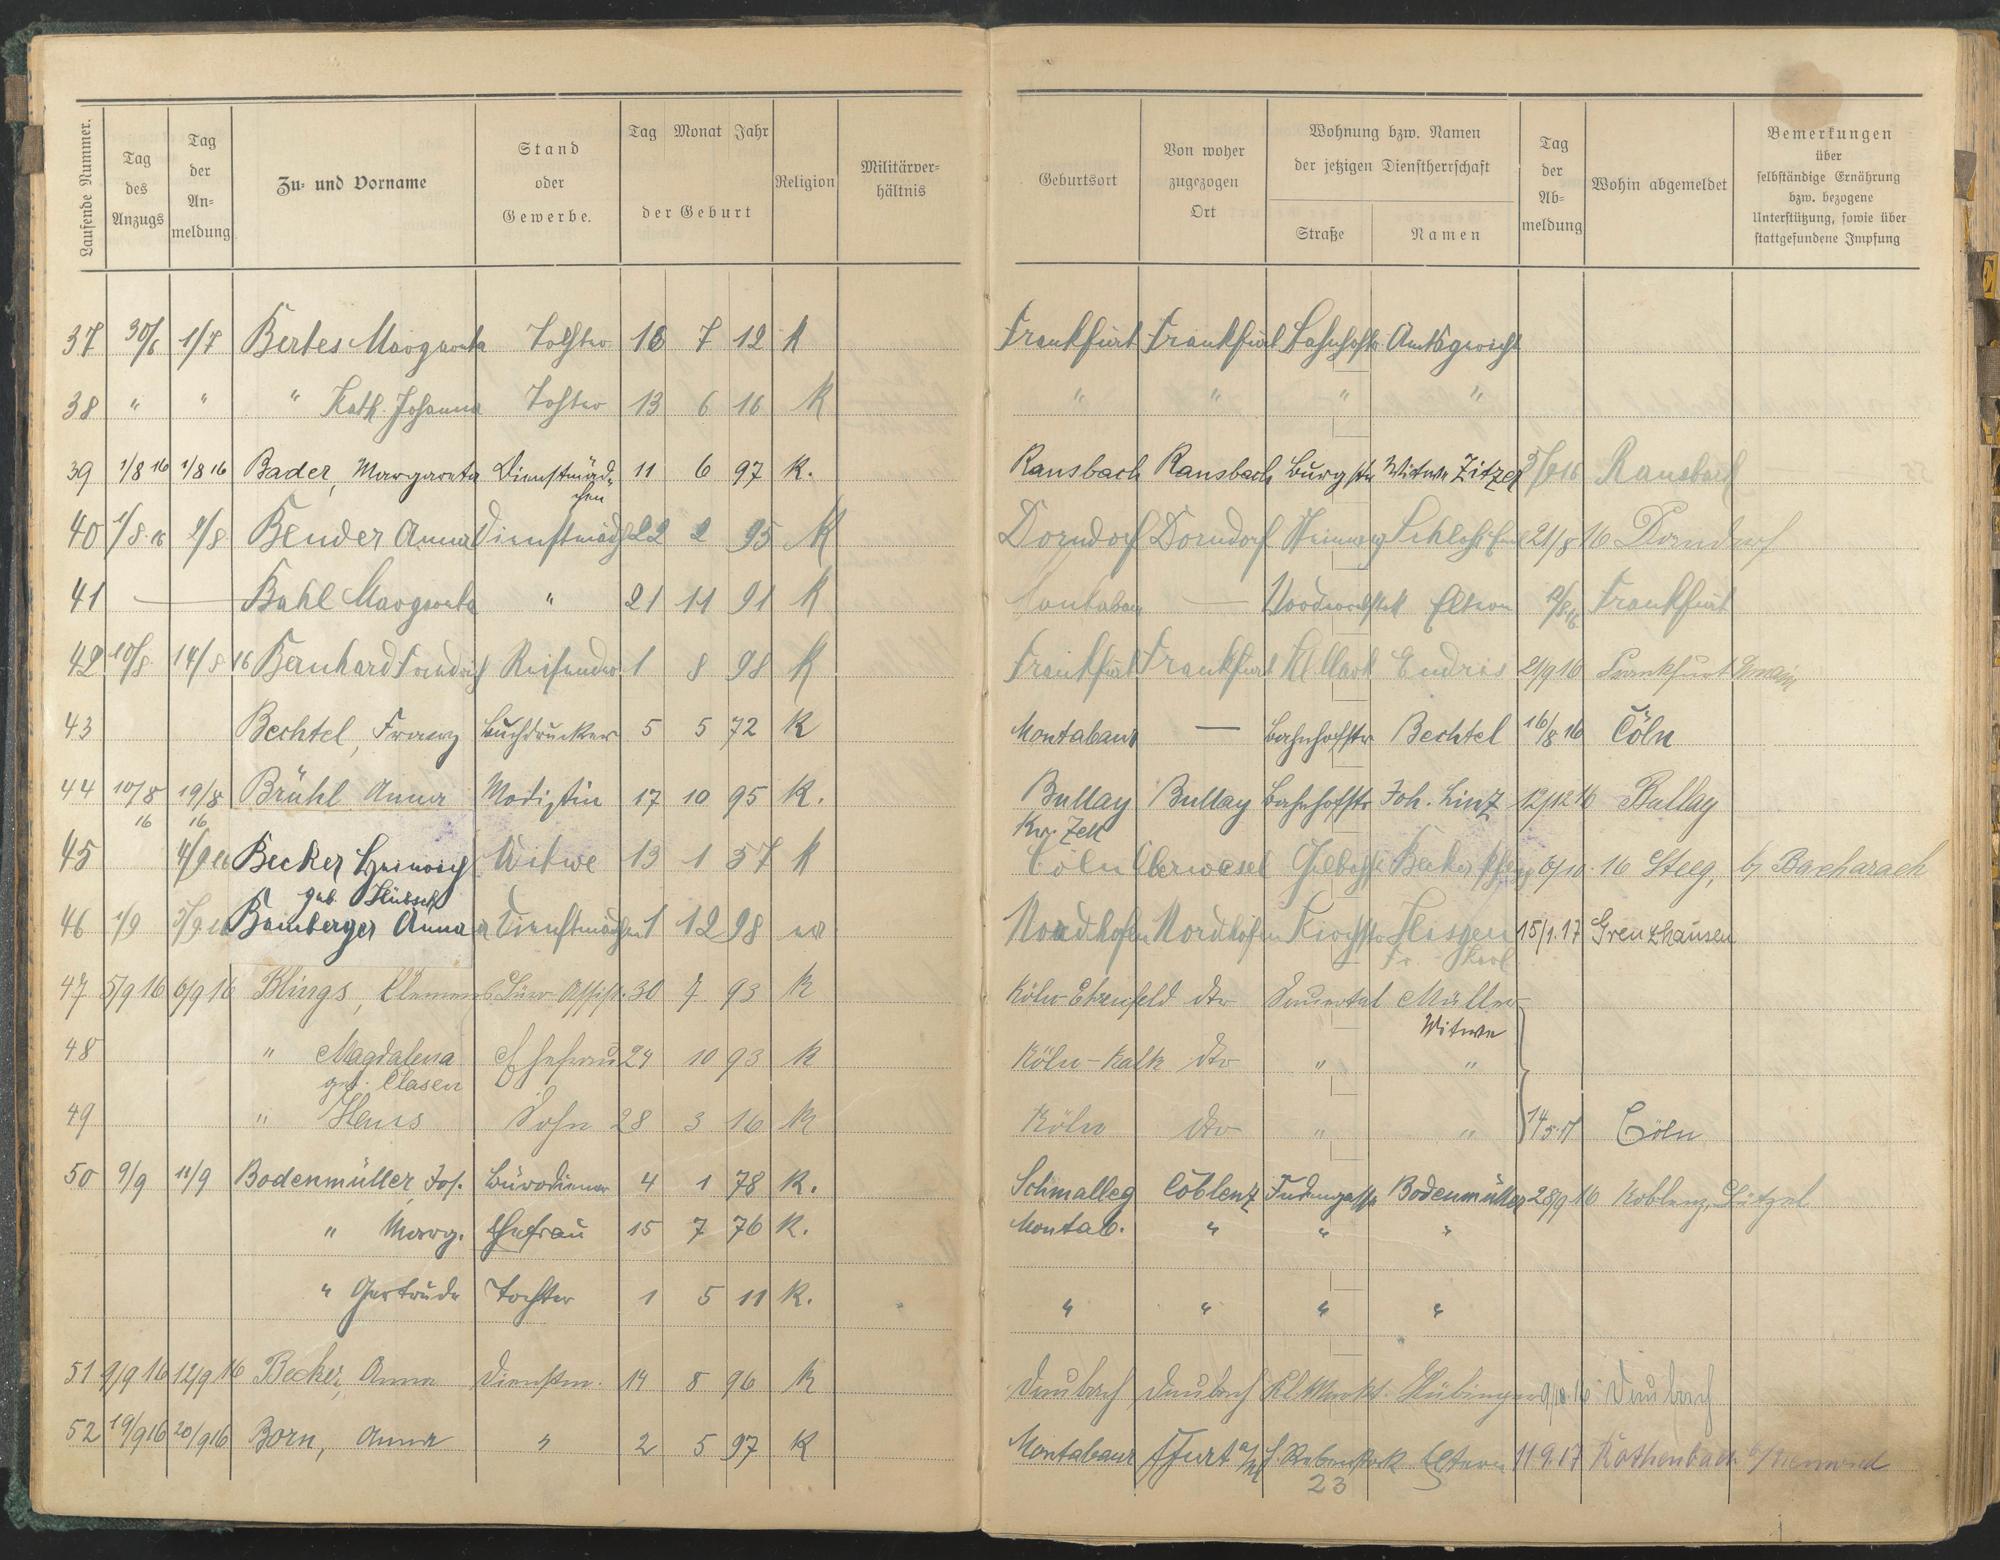 Laufende Nummer. Tag des Anzugs Tag der An- meldung Zu- und Vorname Stand oder Gewerbe. Tag Monat Jahr der Geburt Religion Militärver- hältnis Geburtsort Von woher zugezogen Ort Wohnung bzw. Namen der jetzigen Dienstherrschaft Straße Namen Tag der Ab- meldung Wohin abgemeldet Bemerkungen über selbständige Ernährung bzw. bezogene Unterstützung, sowie über stattgefundene Impfung
37 30/6 1/7 Bertes Margareta Tochter 16 7 12 K Frankfurt Frankfurt Bahnhofstr Amtsgericht
38 " " " Kath. Johanna Tochter 13 6 16 K " " " "
39 1/8 16 1/8 16 Bader, Margareta Dienstmäd- 11 6 97 K. Ransbach Ransbach Burgstr Witwe Zitzer Ransbach
chen
40 1/8. 16 2/8 Bender Anna Dienstmädch 22 2 95 K Dorndorf Dorndorf 21/8 16 Dorndorf
41 — Bahl Margareta " 21 11 91 K Montabaur — Eltern Frankfurt
42 10/8. 14/8 16 Bernhard Friedrich Reisender 1 8 98 K Frankfurt Frankfurt Kl Mark Endris 21/9 16 Frankfurt Main
43 Bechtel, Franz Buchdrucker 5 5 72 K Montabaur — Bahnhofstr Bechtel 16/8 16 Cöln
44 10/8 16 19/8 16 Brühl Anna Modistin 17 10 95 K. Bullay Bullay Bahnhofstr Joh. Linz 12/12 16 Bullay
Kr. Zell
45 4/9 16 Becker Heinrich Witwe 13 1 57 K Cöln Oberwesel Gelbachstr Becker 6/10. 16 Steeg, b/ Bacharach
geb. Hübsch
46 1/9 3/9 16 Bamberger Anna Dienstmädchen 1 12 98 ev Nordhofen Nordhofen Kirchstr Flisgen 15/1.17 Grenzhausen
Fr. Karl
47 5/9 16 6/9 16 Klings, Clemens Büro Assist. 30 7 93 K Köln-Ehrenfeld dto Sauertal Müller
Witwe
48 " Magdalena Ehefrau 24 10 93 K Köln-Kalk dto " "
geb. Clasen
49 " Hans Sohn 28 3 16 K Köln dto " " 14/5.17 Cöln
50 9/9 11/9 Bodenmüller, Jos. Bürodiener 4 1 78 K. Schmalleg Coblenz Judengasse Bodenmüller 28/9 16 Koblenz-Lützel
" Marg. Ehefrau 15 7 76 K. Montab. " " "
" Gertrude Tochter 1 5 11 K. " " " "
51 9/9 16 12/9 16 Becker, Anna Dienstm. 14 8 96 K Daubach Daubach Kl. Markt. Hübinger 9/10 16 Daubach
52 19/9 16 20/9 16 Born, Anna " 2 5 97 K Montabaur Ffurt a/M Rebenstock Eltern 11 9.17 Rothenbach b/
23